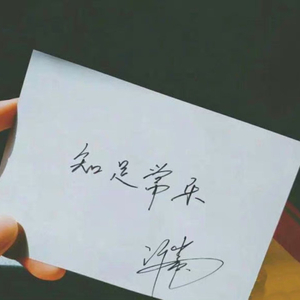 知足常乐